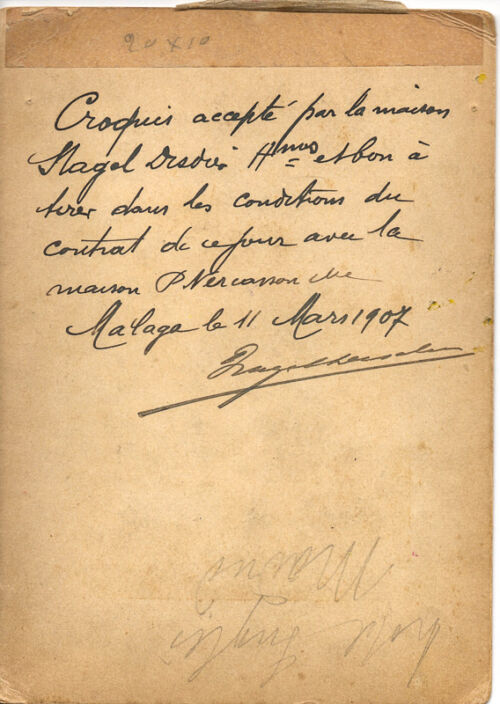 20 x 10
Croquis accepté par la maison
Nagel Disdier Hnos et bon à
tirer dans les conditions du
contrat de ce jour avec la
maison P. Vercasson
Malaga le 11 Mars 1907